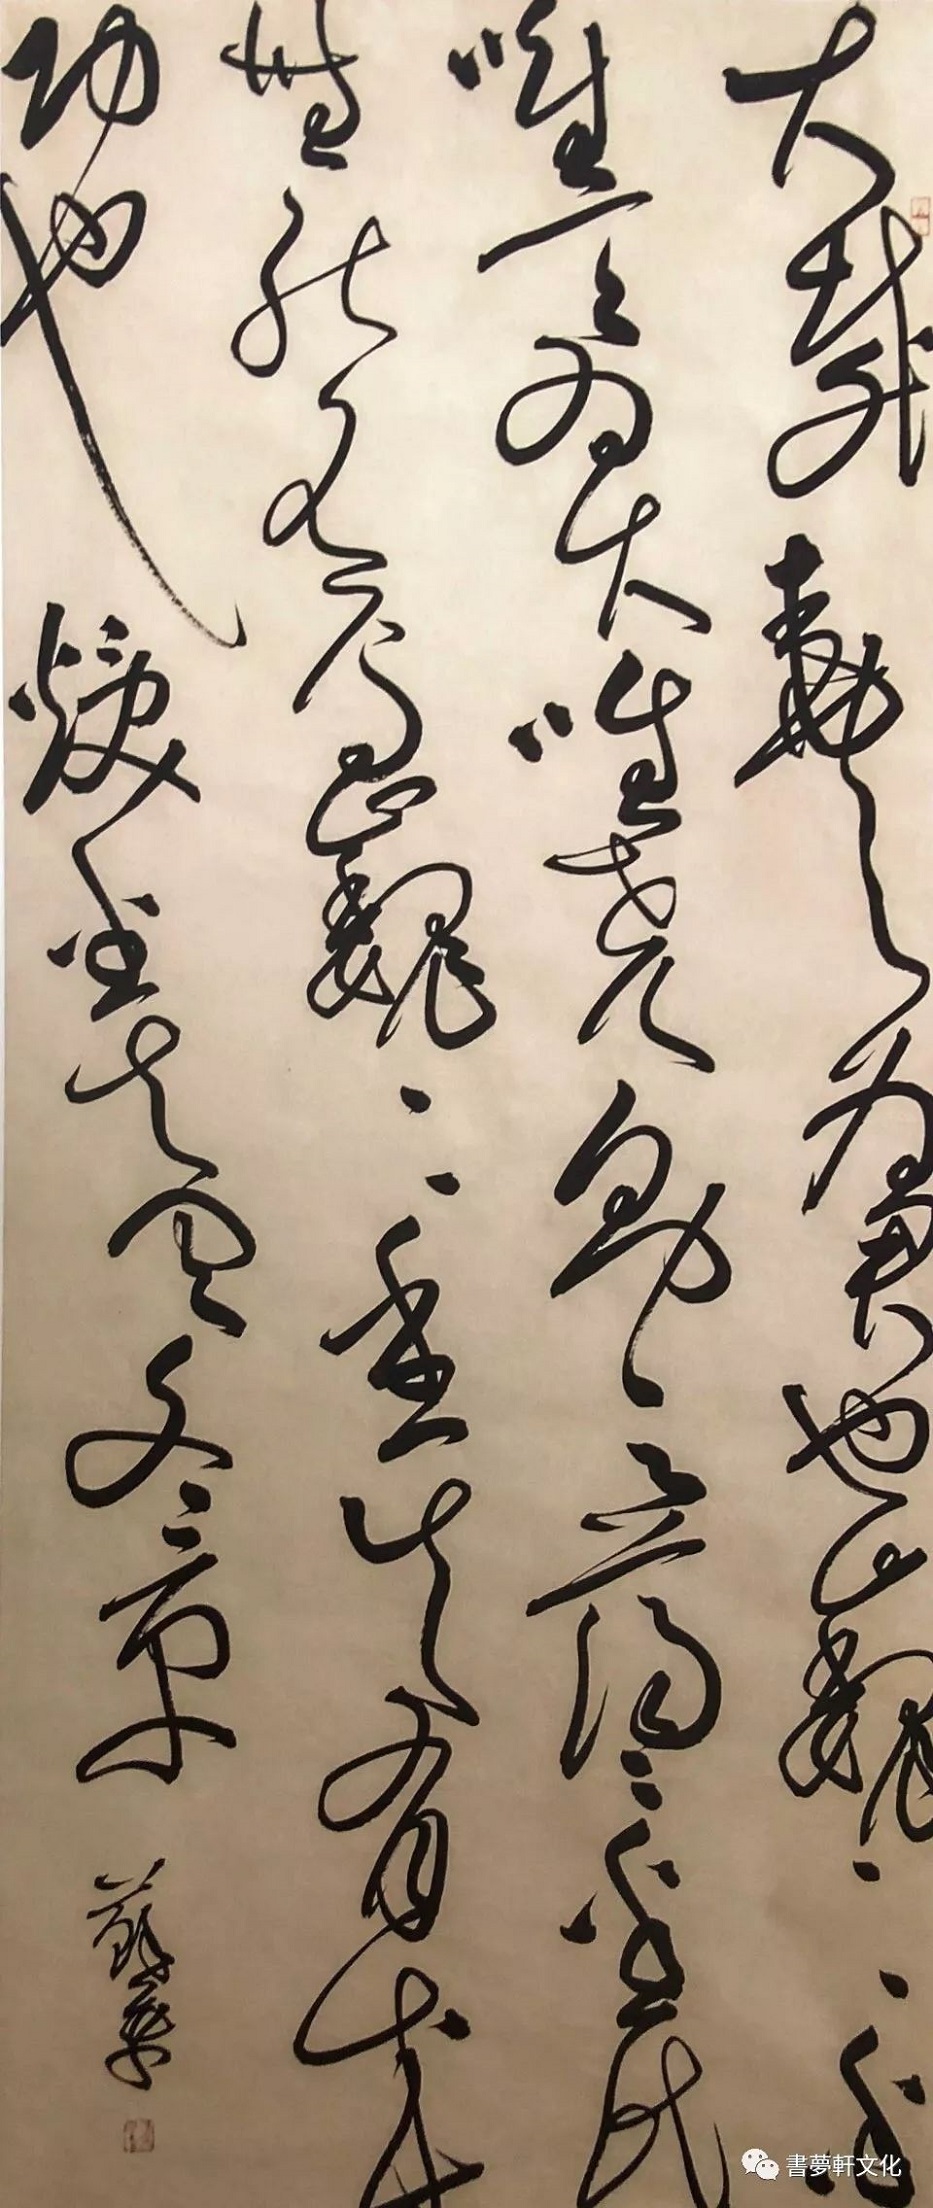 大哉堯之為君也巍〻乎
唯天為大唯堯則之蕩〻乎民
無能名焉巍〻乎其有成
功也煥乎其有文章
書夢軒文化